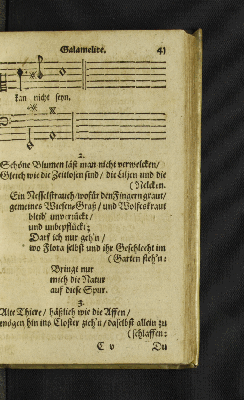 Galamelite. 41
kan nicht seyn.
2.
Schöne Blumen läst man nicht verwelcken/
Gleich wie die Zeitlosen sind/ die Liljen und die
(Nelcken.
Ein Nesselstrauch/wofür den Fingern graut/
gemeines Wiesen-Graß/ und Wolfeskraut
bleib' unverückt/
und unbepflückt:
Darf ich nur geh'n/
wo Flora selbst und ihr Geschlecht im
(Garten steh'n:
Bringt nur
mich die Natur
auf diese Spur.
3.
Alte Thiere/ häßlich wie die Affen/
mögen hin ins Closter zieh'n/ daselbst allein zu
(schlaffen:
C v Du